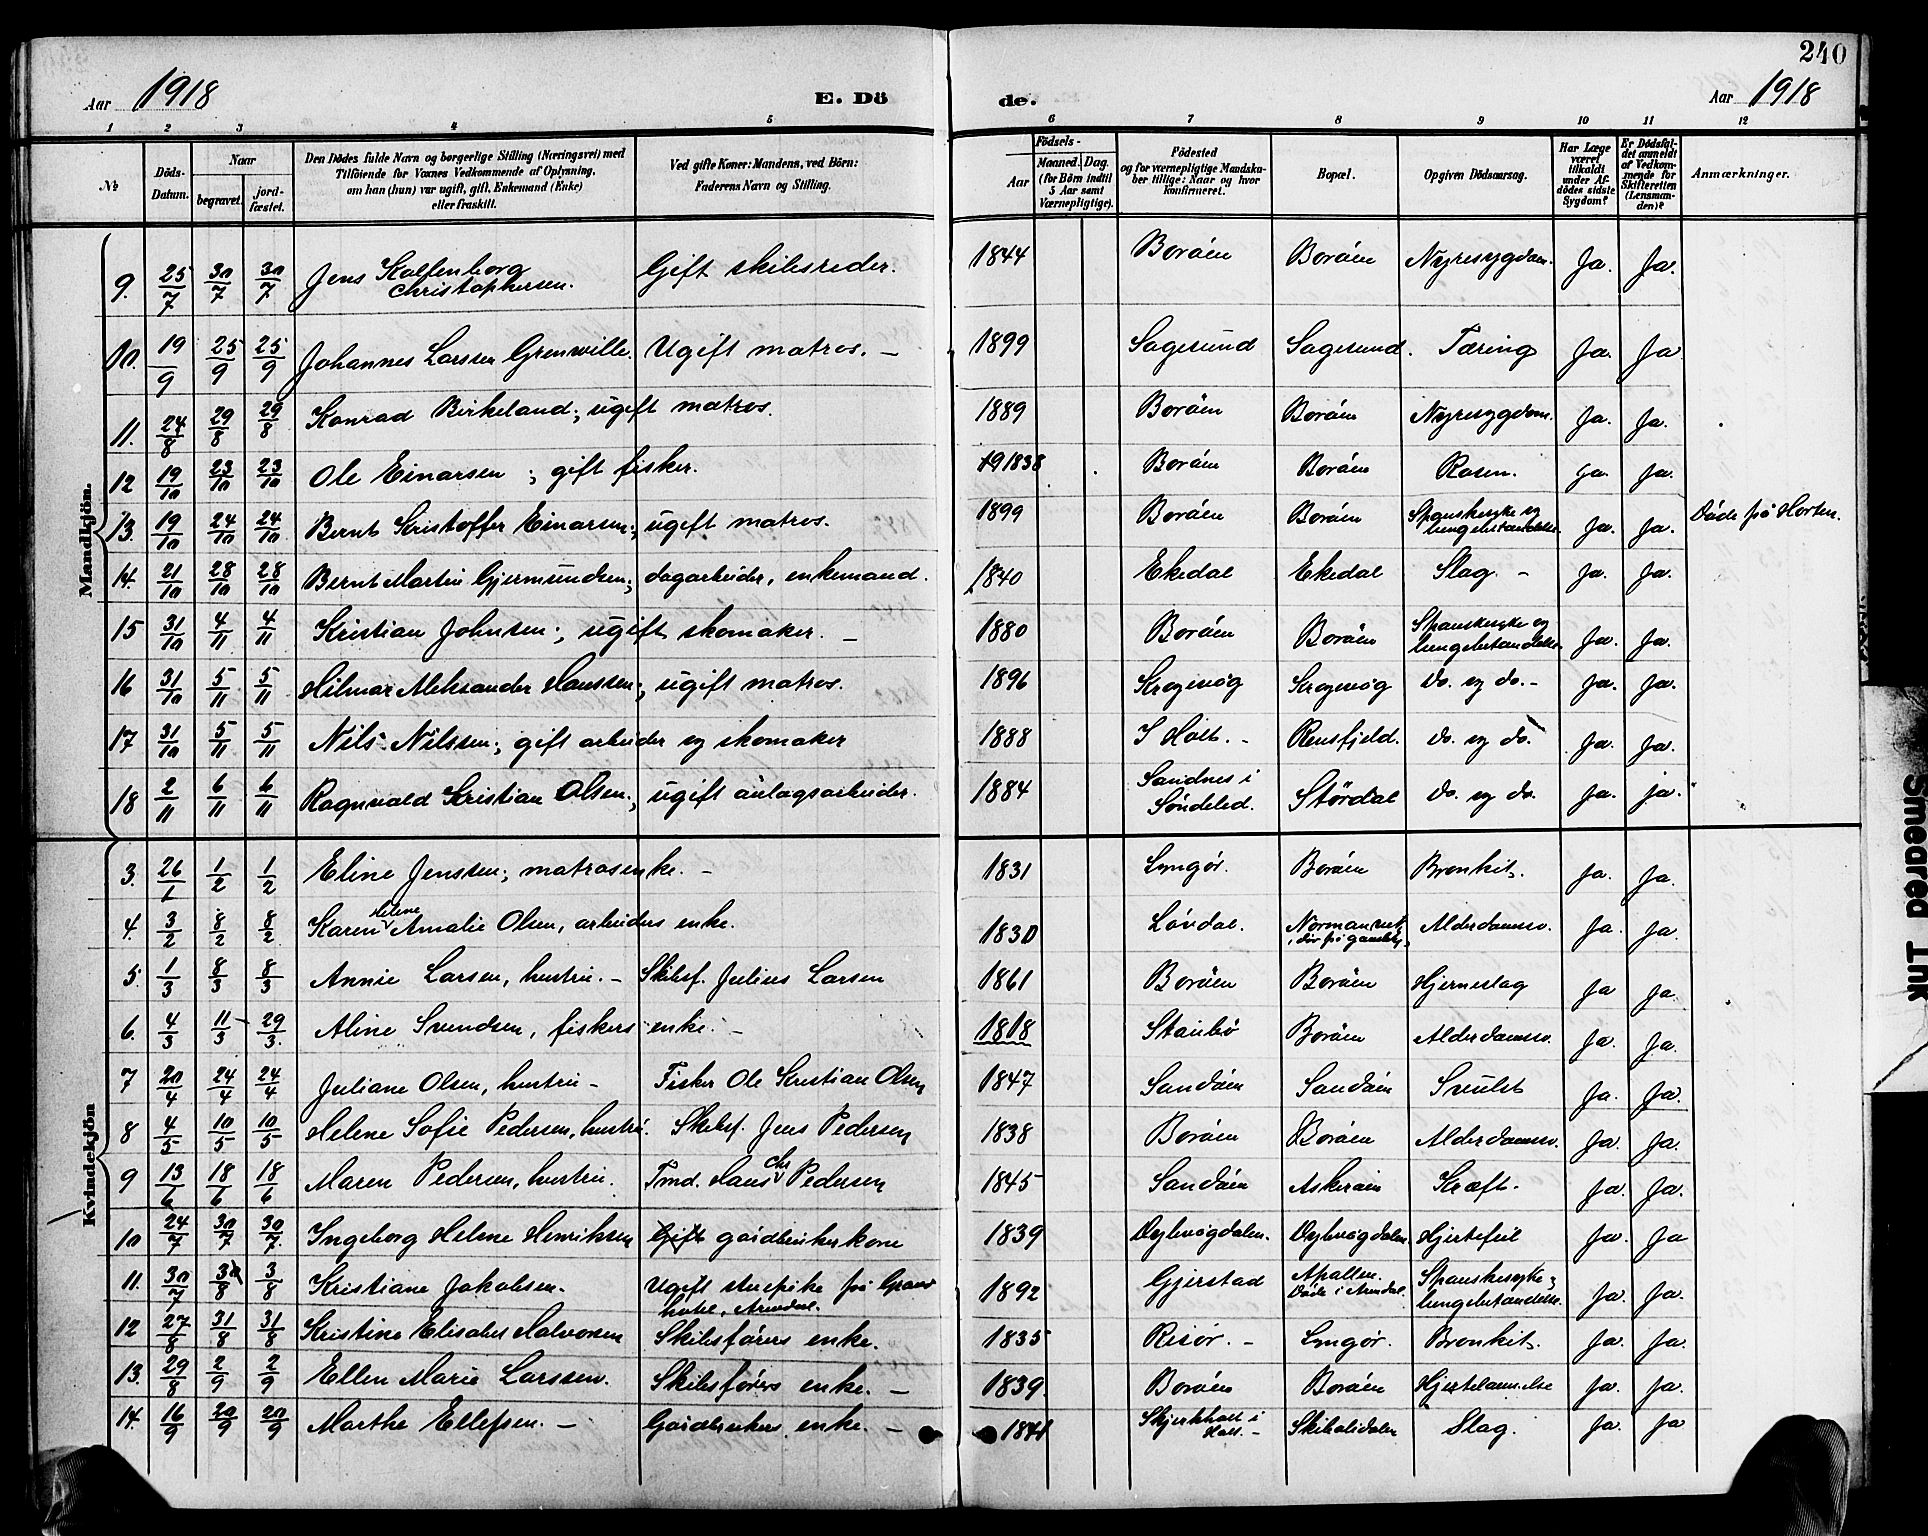 240
Aar 1918
E. Dö
de.
Aar 1918
1 2 3 4 5 6 7 8 9 10 11 12
№
Döds-Datum.
Naar
begravet.
jord-fæstet.
Den Dödes fulde Navn og borgerlige Stilling (Næringsvei) med
Tilföiende for Voxnes Vedkommende af Oplysning,
om han (hun) var ugift, gift, Enkemand (Enke)
eller fraskilt.
Ved gifte Koner: Mandens, ved Börn:
Faderens Navn og Stilling.
Födsels-
Aar
Maaned. Dag.
(for Börn indtil
5 Aar samt
Værnepligtige).
Födested
og for værnepligtige Mandska-
ber tillige: Naar og hvor
konfirmeret.
Bopæl.
Opgiven Dödsaarsag.
Har Læge
været
tilkaldt
under Af-
dödes sidste
Sygdom?
Er Dödsfal-
det anmeldt
af Vedkom-
mende for
Skifteretten
(Lensman-
den)?
Anmærkninger.
Mandkjön.
9. 25/7 30/7 30/7 Jens Kallenborg Christophersen. Gift skibsreder. 1844 Boröen Boröen Nyresygdom. Ja. Ja.
10. 19/9 25/9 25/9 Johannes Larssen Grenwille. Ugift matros. – 1899 Sagesund Sagesund. Tæring Ja. Ja
11. 24/8 29/8 29/8 Konrad Birkeland; ugift matros. 1889 Boröen Boröen Nyresygdom. Ja. Ja.
12 19/10 23/10 23/10 Ole Einarsen; gift fisker. 1838 Boröen Boröen Rosen. Ja. Ja.
13. 19/10 24/10 24/10 Bernt Kristoffer Einarsen; ugift matros. 1899 Boröen Boröen Spanskesyke og lungebetændelse. Ja. Ja. Døde på Horten.
14. 21/10 28/10 28/10 Bernt Martin Gjermundsen; dagarbeider, enkemand. 1840 Ekedal Ekedal Slag. – Ja. Ja.
15 31/10 4/11 4/11 Kristian Johnsen; ugift skomaker. – 1880 Boröen Boröen Spanskesyke og lungebetændelse. Ja. Ja.
16 31/10 5/11 5/11 Hilmar Aleksander Hanssen; ugift matros. 1896 Krogevåg Krogevåg do. og do. – Ja. Ja.
17 31/10 5/11 5/11 Nils Nilssen; gift arbeider og skomaker 1888 I Holt. – Rensfjeld. do. og do. Ja. Ja.
18 2/11 6/11 6/11 Ragnvald Kristian Olsen; ugift anlagsarbeider. 1884 Sandnes i Søndeled. Stördal do. og do. Ja. ja.
Kvindekjön
3. 26/1 1/2 1/2 Eline Jenssen; matrosenke. – 1831 Lyngør. Boröen Bronkit. Ja. Ja.
4. 3/2 8/2 8/2 Karen Helene Amalie Olsen, arbeiders enke. 1830 Løvdal. Alderdomssv. Ja. Ja.
5. 1/3 8/3 8/3 Annie Larsen, hustru. – Skibsf. Julius Larsen 1861 Boröen Boröen Hjerneslag Ja Ja.
6. 4/3 11/3 29/3. Aline Svendsen, fiskers enke. – 1818 Staubø Boröen Alderdomssv. Ja. Ja.
7 20/4 24/4 24/4 Juliane Olsen, hustru – Fisker Ole Kristian Olsen 1847 Sandöen Sandöen Svulst Ja. Ja.
8 4/5 10/5 10/5 Helene Sofie Pedersen, hustru. Skibsf. Jens Pedersen 1838 Boröen Boröen Alderdomssv. Ja. Ja.
9 13/6 18/6 18/6 Maren Pedersen, hustru. Tmd. Hans Chr Pedersen 1845 Sandöen Askeröen Kræft. Ja. Ja.
10 24/7 30/7 30/7. Ingeborg Helene Henriksen Gift gårdbrukerkone 1839 Dybvågdalen. Dybvågdalen. Hjertefeil Ja. Ja
11. 30/7 3/8 3/8 Kristiane Jakobsen. Ugift stuepike på Grand hotel, Arendal. 1892 Gjerstad Apallen. Døde i Arendal. Spanskesyke & lungebetændelse. Ja. Ja.
12 27/8 31/8 31/8 Kristine Elisabet Halvorsen Skibsførers enke. 1835 Risør. – Lyngør. Bronkit. Ja. Ja.
13. 29/8 2/9 2/9 Ellen Marie Larssen. Skibsførers enke. – 1839 Boröen Boröen Hjertelammelse Ja. Ja.
14. 16/9 20/9 20/9 Marthe Ellefsen. – Gårdbrukers enke. – 1841 Skjerkholt i Holt. – Skibalidalen Slag. Ja. Ja
Smeared Ink